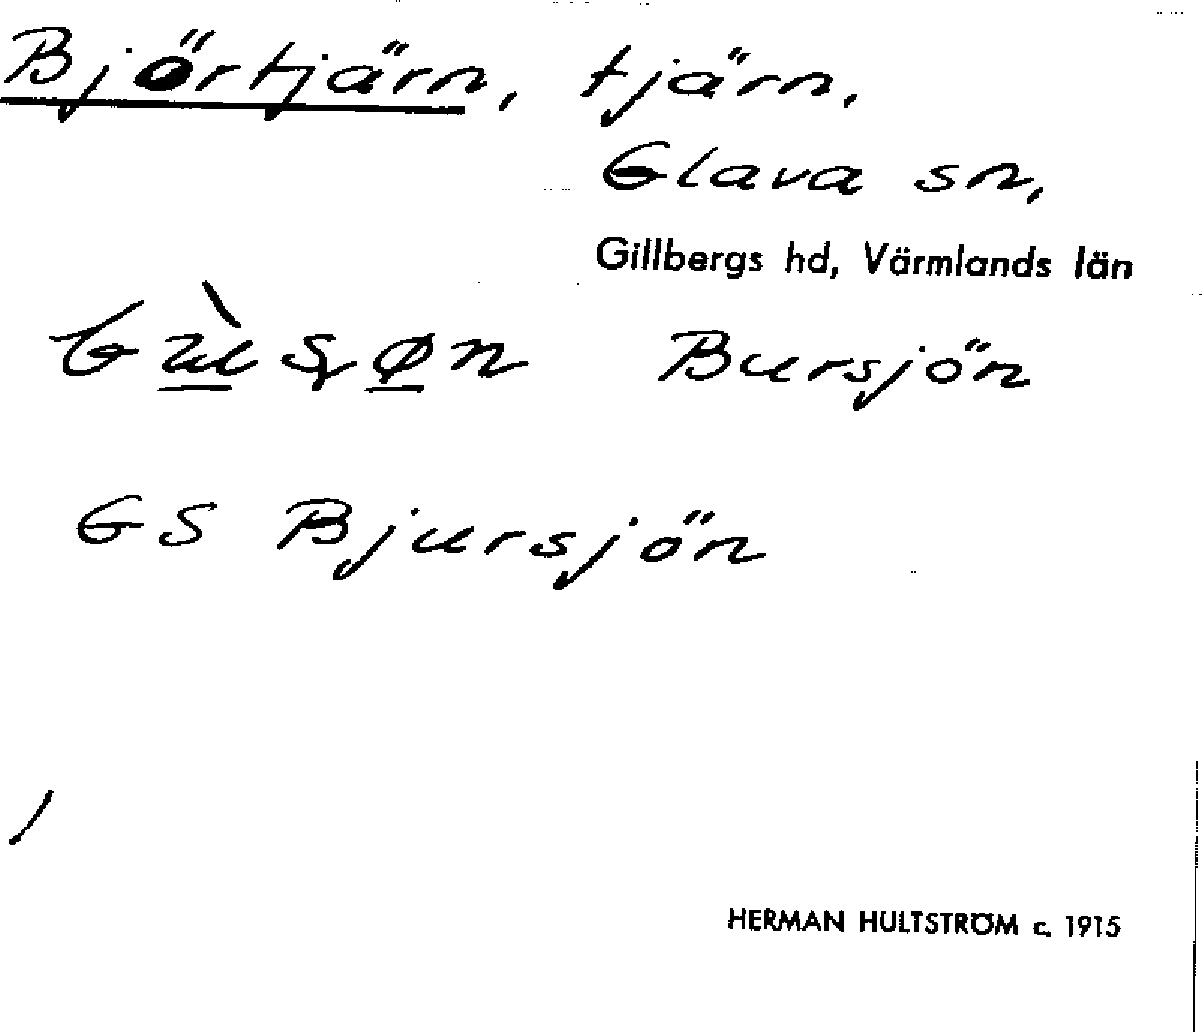 Björtjärn, tjärn,
Glava sn,
Gillbergs hd, Värmlands län
Bursjön
GS Bjursjön
HERMAN HULTSTRÖM c. 1915